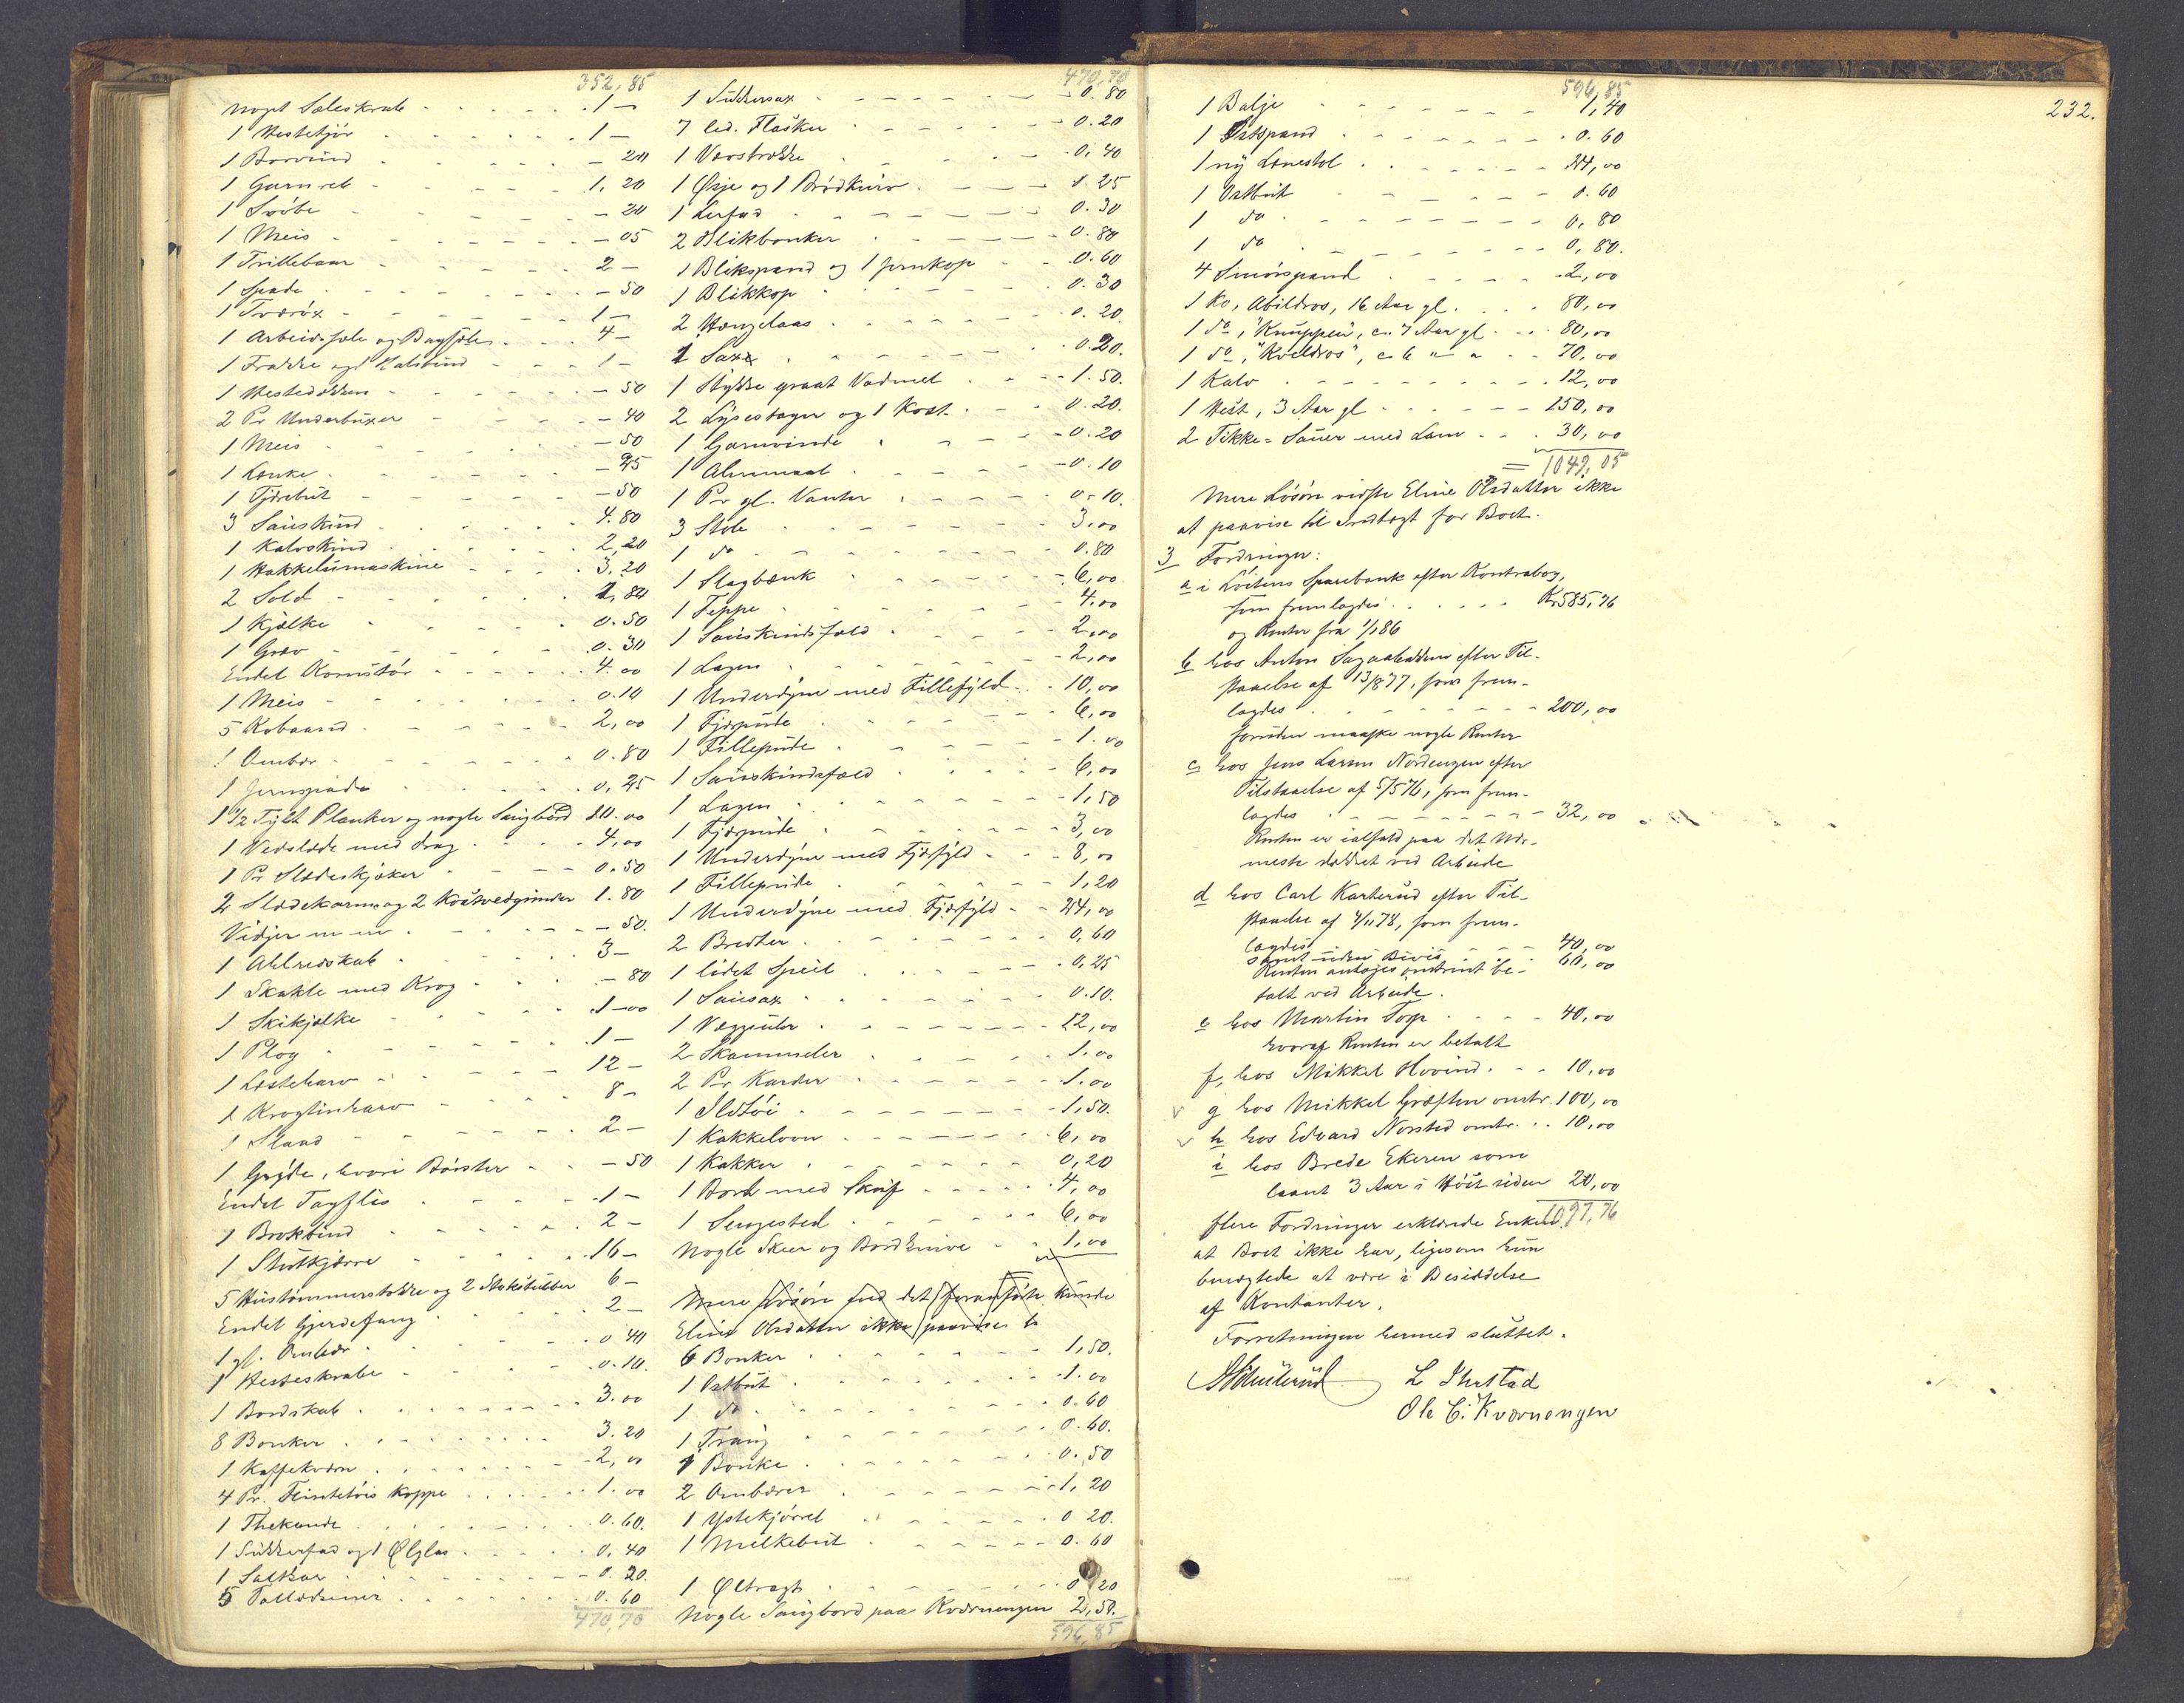 352,85
noget Sæleskrab - 1 -
1 Hestetjor - 1 -
1 Borvind - 20
1 Garnveb - 1.20
1 Svøbe - 20
1 Meis - 05
1 Trillebaar 2 -
1 Spade - 50
1 Tværøx - 1 -
1 Arbeidssæle og Bagsæle 4 -
1 Frakke og 1 Kalvskind 1 -
1 Hestedækken - 50
2 Pr Underbuxer - 40
1 Meis - 50
1 Lænke - 25
1 Tjærebut - 50
3 Saueskind 4.80
1 Kalvskind 2,20
1 Hakkelsmaskine 3.20
2 Sold 1,80
1 Kjælke 0.50
1 Grev 0.30
Endel Kornstør 4.00
1 Meis 0.10
5 Robaand 2,00
1 Ombar 0.80
1 Jernspade 0,25
1 1/2 Tylt Planker og nogle Saugbord 10.00
1 Vedslæde med drag 4,00
1 Pr Slædeskjæker 0.50
2 Slædekarme og 2 Kostvedgrinder 1.80
Vidjer m m - 50.
1 Ahlredskab 3 -
1 Skakle med Krog - 80
1 Skikjælke 1-00
1 Plog 1 -
1 Læsteharv 12 -
1 Krogtinharv 8 -
1 Staad 2 -
1 Gryde, hvori Børster - 50
Endel Tagflis 1 -
1 Brokbind 2 -
1 Stutkjærre 16 -
5 Hustømmerstokke og 2 Stokstubber 6 -
Endel Gjerdefang 2 -
1 gl. Ombar 0 40
1 Hesteskrabe 0.10.
1 Bordskab 3.00
8 Bonker 3.20
1 Kaffekværn 2,00
4 Pr. Flintetøis Koppe 1.00
1 Thekande 0.60.
1 Sukkerfad og 1 Ølglas 0,40
1 Saltkar 0.20.
5 Tallerkener 0.60
470,70
470,70
1 Sukkersax 0.80
7 led. Flasker 0.20
1 Vævstrække 0.40
1 Øsje og 1 Brødkurv 1.25
1 Lerfad 0.30
2 Blikbonker 0.80
1 Blikspand og 1 Jernkop 0.60
1 Blikkop 0.30
2 Hængelaas 0.20.
1 Sax 0.20.
1 Stykke graat Vadmel 1.50.
2 Lysestager og 1 Kost 0.20.
1 Garnvinde 0.20
1 Alenmaal 0.10
1 Pr gl. Vanter 0.10.
3 Stole 3.00
1 do 0.80
1 Slagbænk 6,00
1 Teppe 4.00
1 Saueskindsfæld 2,00
1 Lagen 2,00
1 Underdyne med Fillefyld 10,00
1 Fjærpude 6,00
1 Fillepude 1.00
1 Saueskindsfæld 6,00
1 Lagen 1,50
1 Fjærpude 3,00
1 Underdyne med Fjærfyld 8,00
1 Fillepude 1,20
1 Underdyne med Fjærfyld 24,00
2 Bredter 0,60
1 lidet Speil 0,25
1 Sausax 0.10.
1 Vægguhr 12,00
2 Skammeler 1.00
2 Pr Karder 1.00
1 Ildtøi 1,50.
1 Kakkelovn 6,00
1 Kakker 0,20
1 Bord med Skuf 4,00
1 Sengested 6,00
Nogle Skeer og Bordknive 1,00
Mere Løsøre end det foranførte kunde
Eline Olsdatter ikke paavise to
6 Bonker 1,50.
1 Ostbut 1.00
1 do 0.60
1 Traug 0.60.
1 Bonke 0.50
2 Ombarer 1,20
1 Ystekjørrel 0 20.
1 Melkebut 0.60
1 Øltragt 0 20
Nogle Saugbord paa Kværnengen 2,50.
596,85
232.
596,85
1 Balje 1,40
1 Ostspand 0.60
1 ny Lænestol 24,00
1 Ostbut 0.60
1 do 0,80
1 do 0,80.
4 Smørspand 2,00
1 Ko, Abildros, 16 Aar gl. 80,00
1 do, "Knuppen", c. 7 Aar gl 80,00
1 do, "Kveldros", c. 6 " " 70,00
1 Kalv 12,00
1 Hest, 3 Aar gl 150,00
2 Tikke-Sauer med Lam 30,00
= 1049,05
Mere Løsøre vidste Eline Olsdatter ikke
at paavise til Indtægt for Boet.
3 Fordringer:
a i Løitens Sparebank efter Kontrabog,
som fremlagdes Kr 585,76
og Renter fra 1/1 86
b hos Anton Sagaabakken efter Til-
staaelse af 13/8 77, som frem-
lagdes 200,00
foruden maaske nogle Renter
c hos Jens Larsen Nordengen efter
Tilstaaelse af 5/5 76, som frem-
lagdes 32,00
Renten er ialfald paa det Nær-
meste dækket ved Arbeide
d hos Carl Karterud efter Til-
staaelse af 4/11 78, som frem-
lagdes 40,00
samt uden Bevis 60,00
Renten antages omtrent be-
talt ved Arbeide.
e hos Martin Torp 40,00
hvoraf Renten er betalt
f, hos Mikkel Hovind 10,00
g hos Mikkel Græften omtr. 100,00
h hos Edvard Norstad omtr. 10,00
i hos Brede Ekeren som
laant 3 Aar i Høst siden 20,00
1097,76
flere Fordringer erklærede Enken
at Boet ikke har, ligesom hun
benægtede at være i Besiddelse
af Kontanter.
Forretningen hermed sluttet.
L Ihrstad
Ole C. Kværnengen